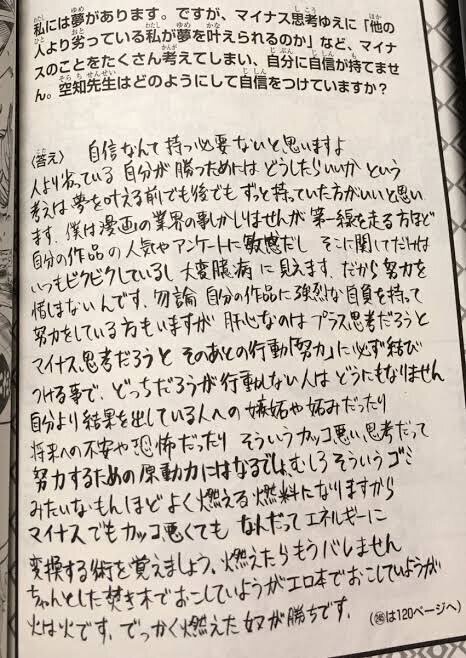 私には夢があります。ですが、マイナス思考ゆえに「他の
人より劣っている私が夢を叶えられるのか」など、マイナ
スのことをたくさん考えてしまい、自分に自信が持てませ
ん。空知先生はどのようにして自信をつけていますか？
〈答え〉 自信なんて持つ必要ないと思いますよ
人より劣っている自分が勝つためにはどうしたらいいかという
考えは夢を叶える前でも後でもずっと持っていた方がいいと思い
ます。僕は漫画の業界の事しかしりませんが第一線を走る方ほど
自分の作品の人気やアンケートに敏感だし そこに関してだけは
いつもビクビクしているし 大変臆病に見えます。だから努力を
惜しまないんです。勿論 自分の作品に強烈な自負を持って
努力をしている方もいますが 肝心なのはプラス思考だろうと
マイナス思考だろうと そのあとの行動「努力」に必ず結び
つける事で、どっちだろうが行動しない人はどうにもなりません
自分より結果を出している人への嫉妬や妬みだったり
将来への不安や恐怖だったり そういうカッコ悪い思考だって
努力するための原動力にはなるでしょ むしろそういうゴミ
みたいなもんほどよく燃える燃料になりますから
マイナスでもカッコ悪くても なんだってエネルギーに
変換する術を覚えましょう、燃えたらもうバレません
ちゃんとした焚き木でおこしていようがエロ本でおこしていようが
火は火です。でっかく燃えた奴が勝ちです。
（㊻は120ページへ）